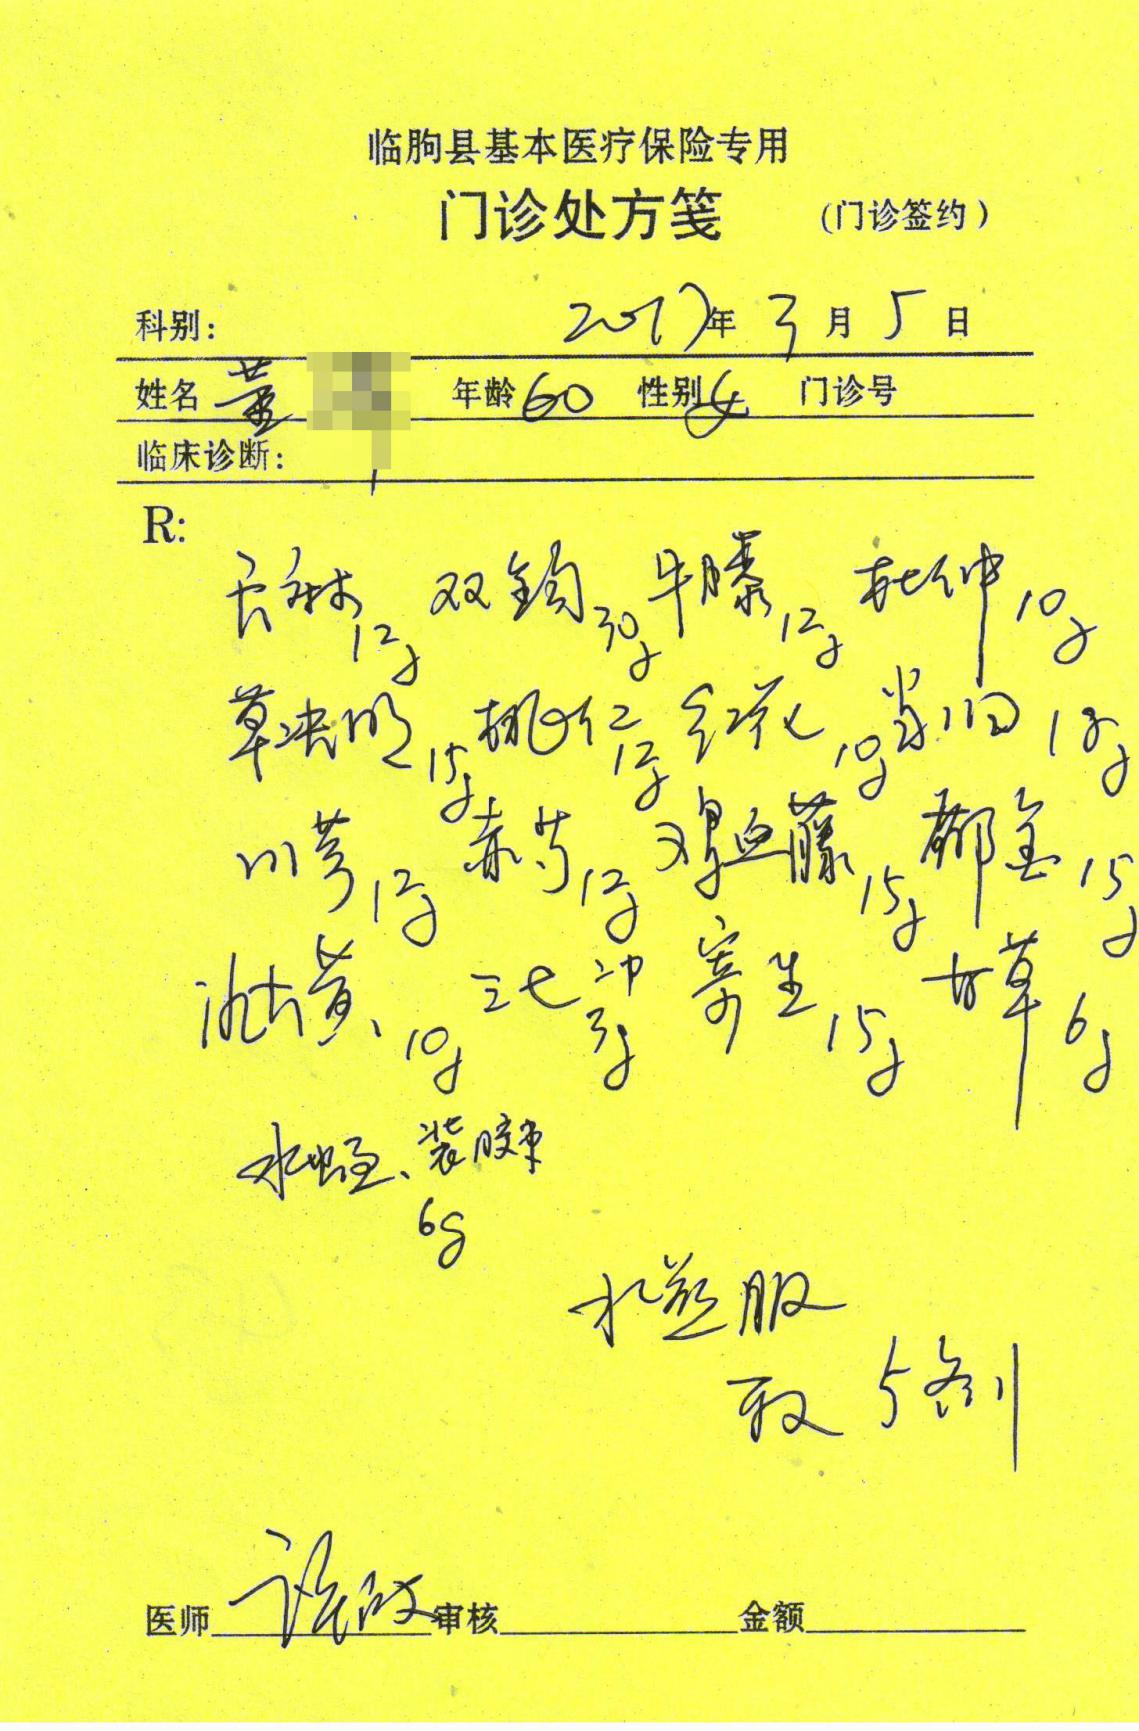 临朐县基本医疗保险专用
门诊处方笺 (门诊签约)
科别: 2017年 3月 5日
姓名 董 年龄60 性别女 门诊号
临床诊断:
R:
天麻12g 双钩30g 牛膝12g 杜仲10g
草决明15g 桃仁12g 红花10g 当归18g
川芎12g 赤芍12g 鸡血藤15g 郁金15g
酒大黄10g 三七冲3g 寄生15g 甘草6g
水蛭、装胶囊
6g
水煎服
取5剂
医师 审核 金额